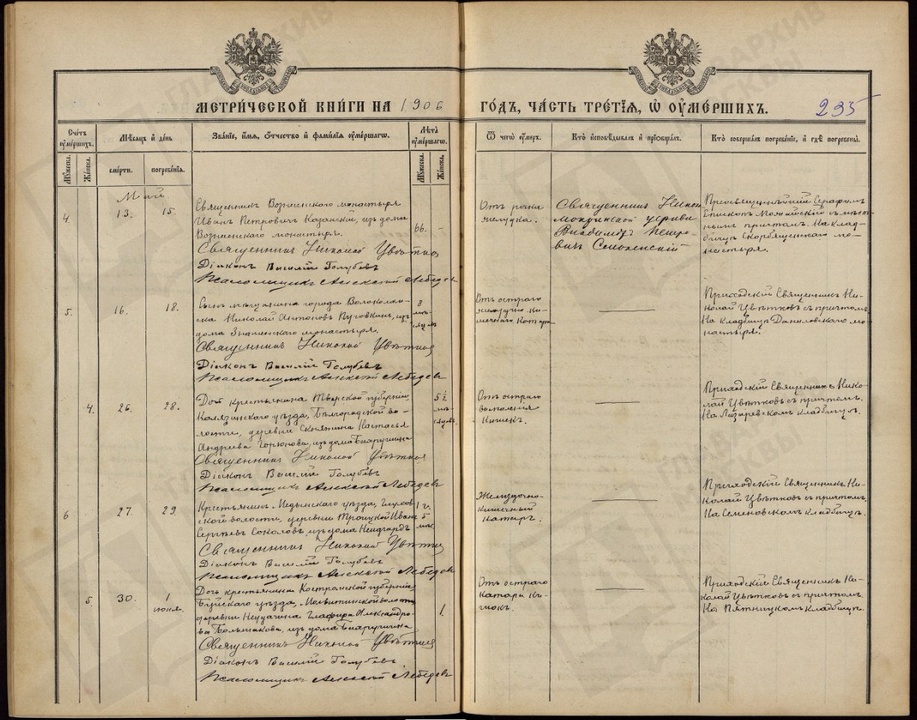 МЕТРИЧЕСКОЙ КНИГИ НА 1906
ГОДЪ, ЧАСТЬ ТРЕТІЯ, Ѿ ОУМЕРШИХЪ.
235
Счетъ оумершихъ.
Мѣсяцъ и день
Званіе, имя, отчество и фамилія оумершаго.
Лѣта оумершаго.
Мужеска.
Женска.
смерти.
погребенія.
Мужеска.
Женска.
Ѿ чего оумеръ.
Кто исповѣдывалъ и пріобщалъ.
Кто совершалъ погребеніе, и гдѣ погребены.
Май
4.
13.
15.
Священникъ Вознесенскаго монастыря
Иванъ Петровичъ Казанскій, изъ дома
Вознесенскаго монастыря.
66.
-
Священникъ Николай Цвѣтковъ
Діаконъ Василій Голубевъ
Псаломщикъ Алексѣй Лебедевъ
Отъ рака
желудка.
Священникъ
церкви
Владиміръ
Смоленскій
Преосвященнѣйшій Серафимъ
Епископъ Можайскій съ
причтомъ. На клад-
бищѣ Скорбященскаго мо-
настыря.
5.
16.
18.
Сынъ мѣщанина города Волоколам-
ска Николай Антоновъ изъ
дома Знаменскаго монастыря
8
мѣ-
Священникъ Николай Цвѣтковъ
Діаконъ Василій Голубевъ
Псаломщикъ Алексѣй Лебедевъ
Отъ остраго
желудочно-ки-
шечнаго катарра
Приходскій Священникъ Ни-
колай Цвѣтковъ съ причтомъ
На кладбищѣ Даниловскаго мо-
настыря.
4.
26.
28.
Дочь крестьянина Тверской губерніи,
Калязинскаго уѣзда, Бѣлгородской во-
лости, деревни Настасья
Андреева Горюнова, изъ дома
Священникъ Николай Цвѣтковъ
Діаконъ Василій Голубевъ
Псаломщикъ Алексѣй Лебедевъ
5½
мѣ-
Отъ остраго
воспаленія
кишекъ.
Приходскій Священникъ Нико-
лай Цвѣтковъ съ причтомъ,
На Лазаревскомъ кладбищѣ.
6
27.
29
Крестьянинъ Медынскаго уѣзда,
волости, деревни Троицкой Иванъ
Сергѣевъ Соколовъ, изъ дома
1 г.
5
мѣс.
Священникъ Николай Цвѣтковъ
Діаконъ Василій Голубевъ
Псаломщикъ Алексѣй Лебедевъ
Желудочно-
кишечный
катарръ.
Приходскій Священникъ Ни-
колай Цвѣтковъ съ причтомъ,
На Семеновскомъ кладбищѣ.
5
30.
1
іюня.
Дочь крестьянина Костромской губерніи
Буйскаго уѣзда, Молвитинской волости
деревни Глафира Александро-
ва изъ дома
1
Священникъ Николай Цвѣтковъ
Діаконъ Василій Голубевъ.
Псаломщикъ Алексѣй Лебедевъ
Отъ остраго
катара ки-
шокъ.
Приходскій Священникъ Ни-
колай Цвѣтковъ съ причтомъ
На Пятницкомъ кладбищѣ.